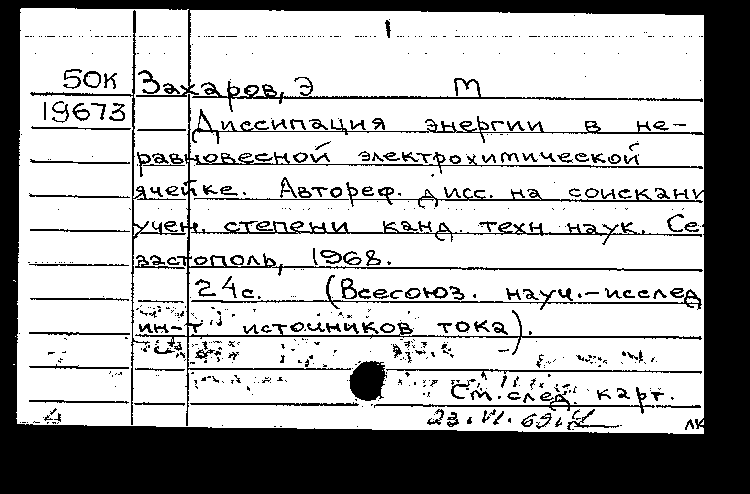 1
50К Захаров, Э М
19673 Диссипация энергии в не-
равновесной электрохимической
ячейке. Автореф. дисс. на соискани
учен. степени канд. техн наук. Се
вастополь, 1968.
24с. (Всесоюз. науч.-исслед
ин-т источников тока).
См. след. карт.
23.VI.69г